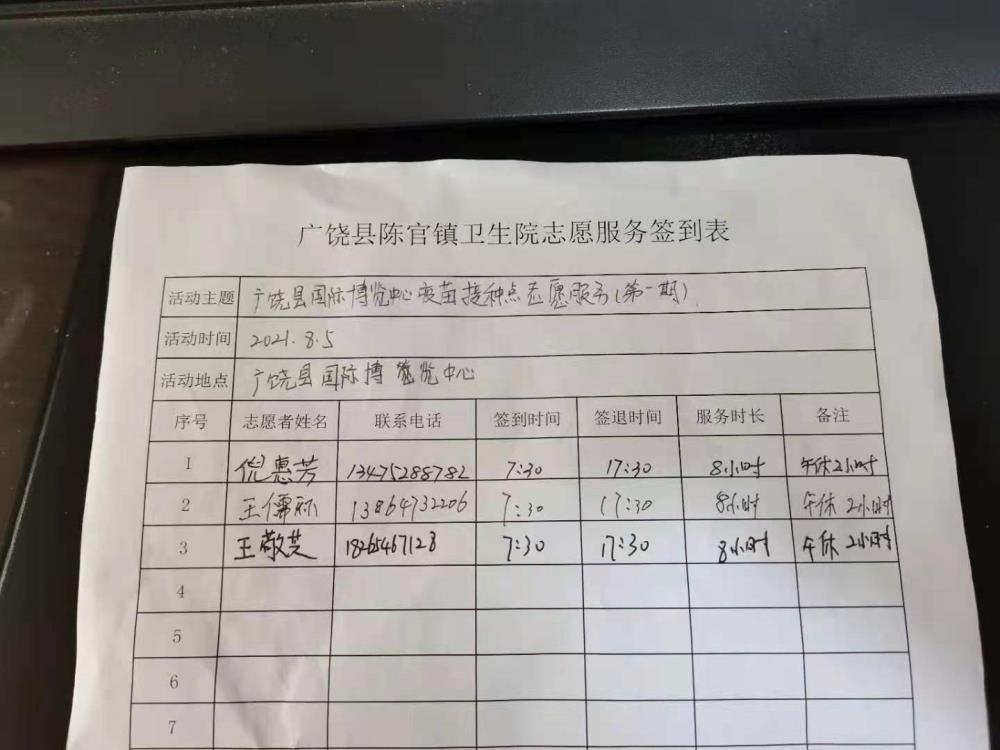 广饶县陈官镇卫生院志愿服务签到表
活动主题 广饶县国际博览中心疫苗接种点志愿服务(第一期)
活动时间 2021.8.5
活动地点 广饶县国际博览中心
序号 志愿者姓名 联系电话 签到时间 签退时间 服务时长 备注
1 倪惠芳 13475288782 7:30 17:30 8小时 午休2小时
2 王儒 13864732206 7:30 17:30 8小时 午休2小时
3 王敬芝 7:30 17:30 8小时 午休2小时
4
5
6
7